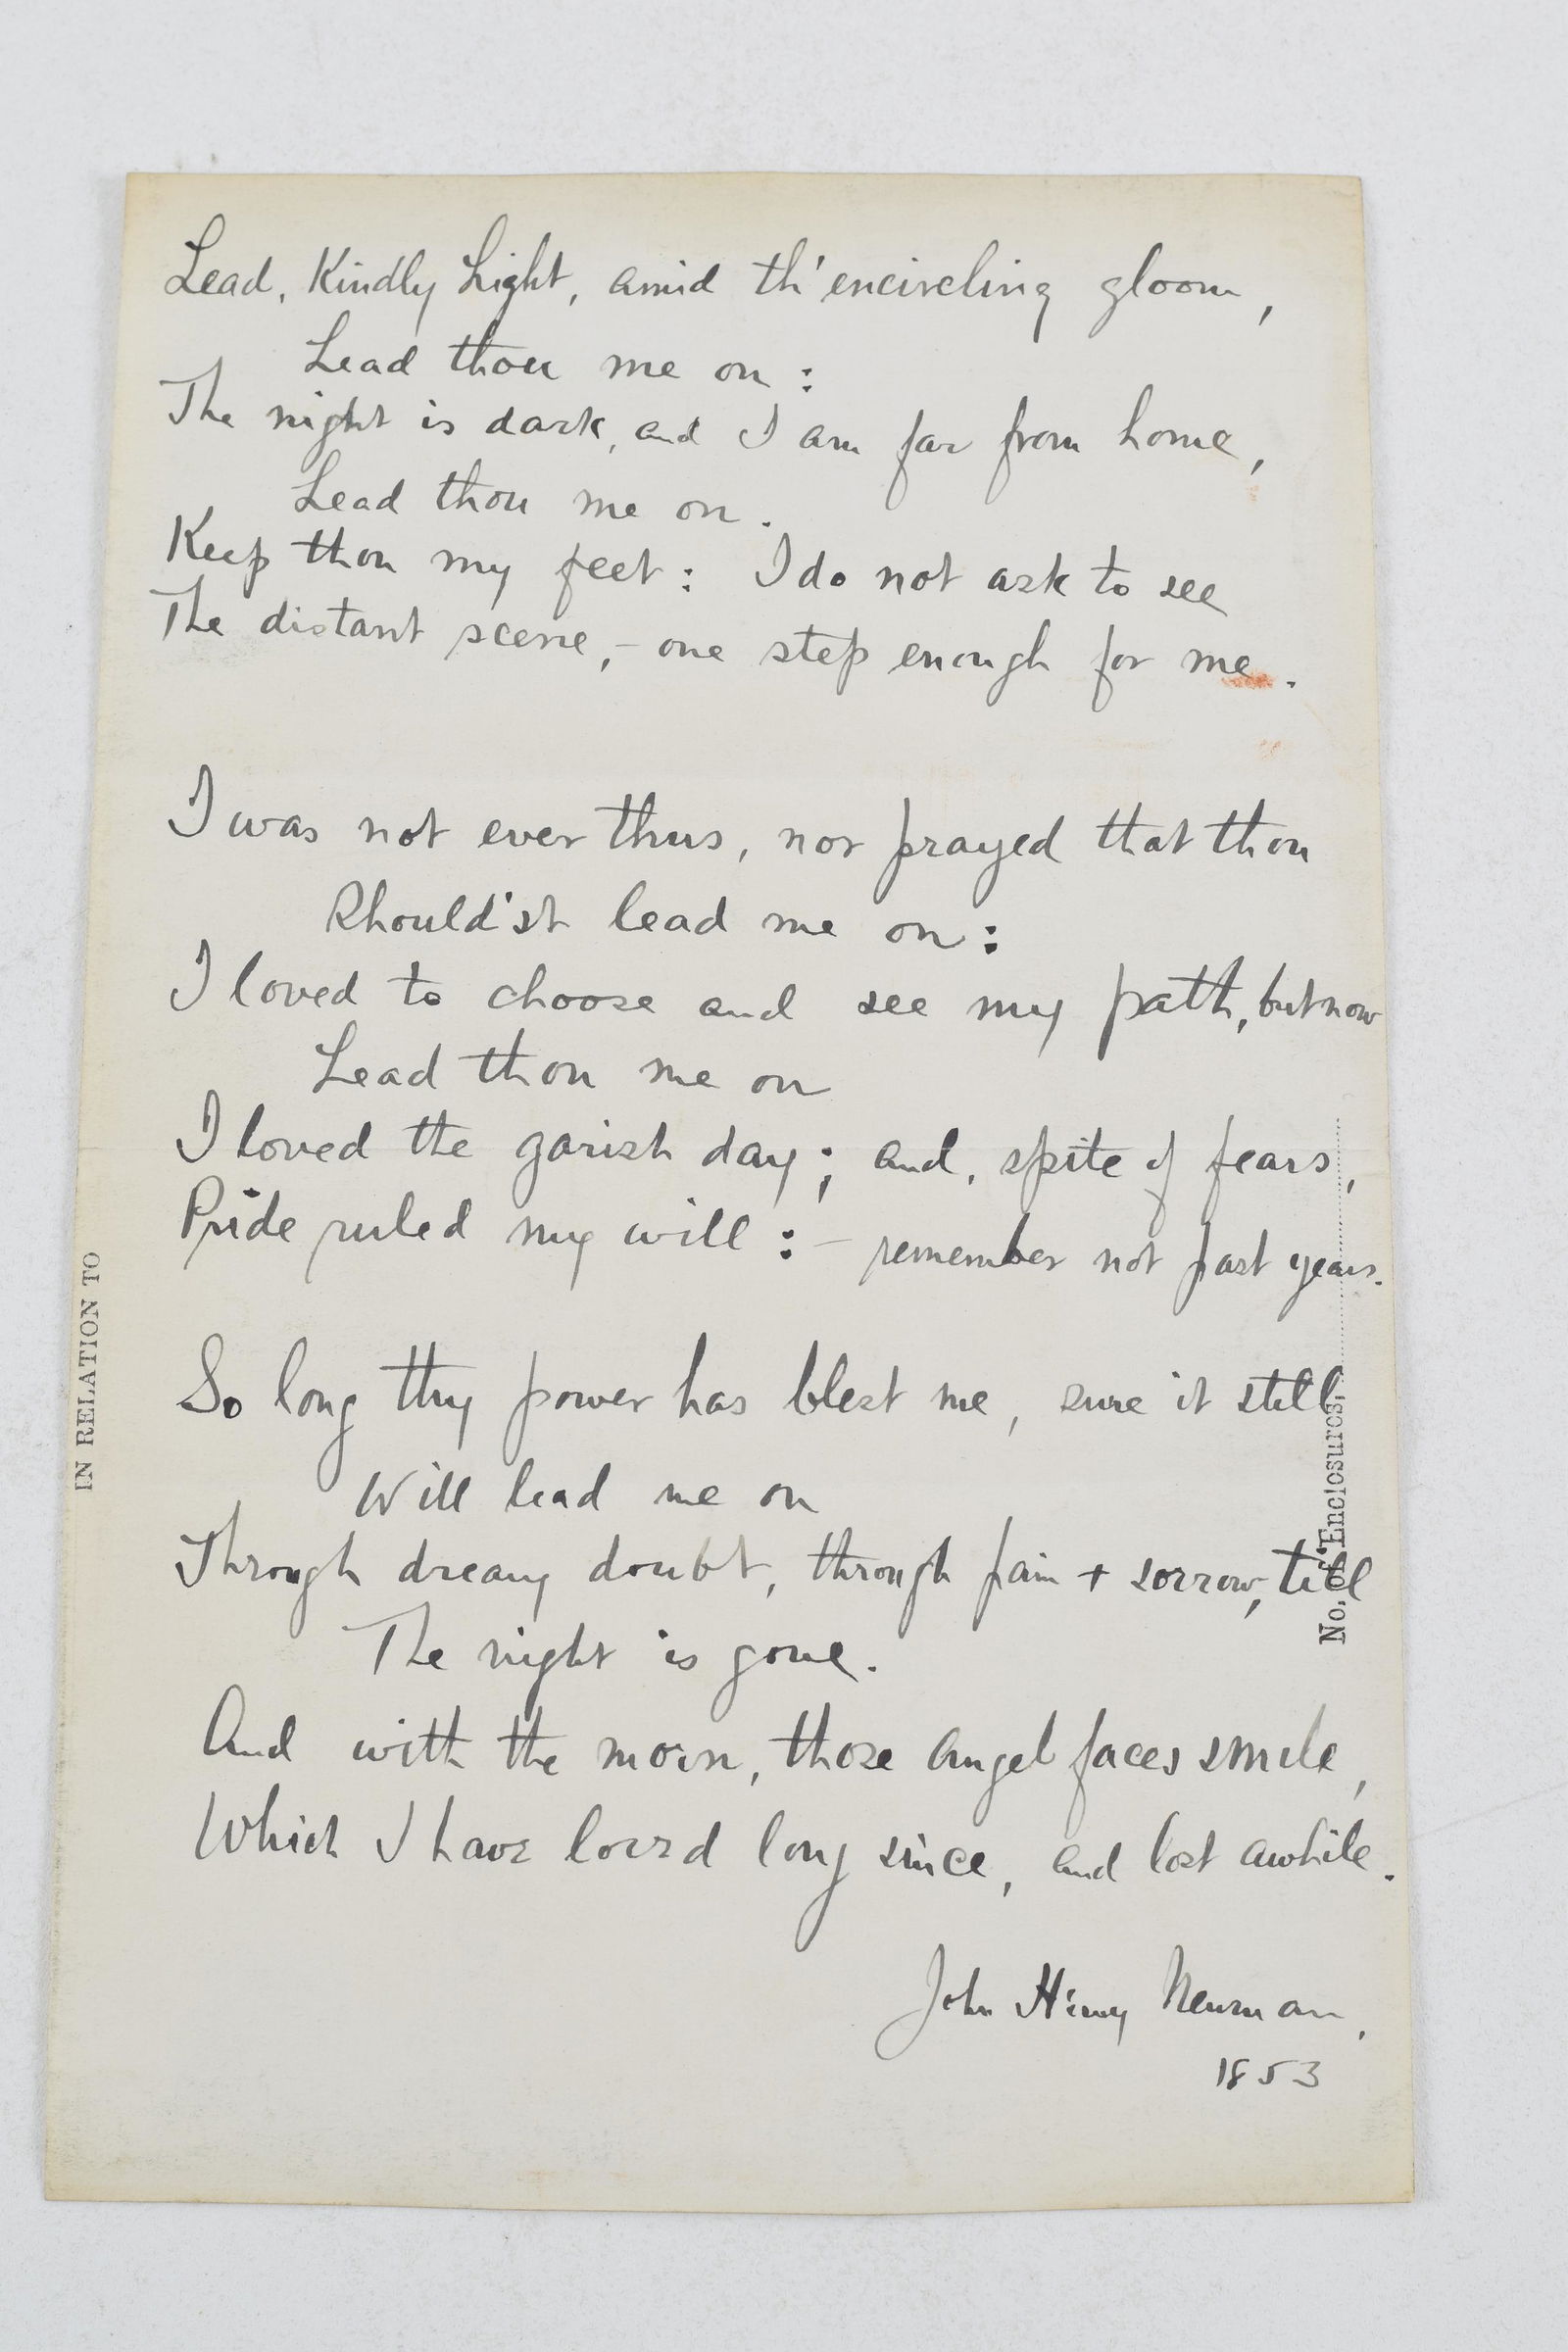 Lead, Kindly Light, amid th'encircling gloom,
Lead thou me on:
The night is dark, and I am far from home,
Lead thou me on.
Keep thou my feet: I do not ask to see
The distant scene, - one step enough for me.
I was not ever thus, nor prayed that thou
Should'st lead me on:
I loved to choose and see my path, but now
Lead thou me on
I loved the garish day; and, spite of fears,
Pride ruled my will: - remember not past years.
So long thy power has blest me, sure it still
Will lead me on
Through dreary doubt, through pain + sorrow, till
The night is gone.
And with the morn, those angel faces smile,
Which I have loved long since, and lost awhile.
John Henry Newman,
1853
IN RELATION TO
No. of Enclosures,